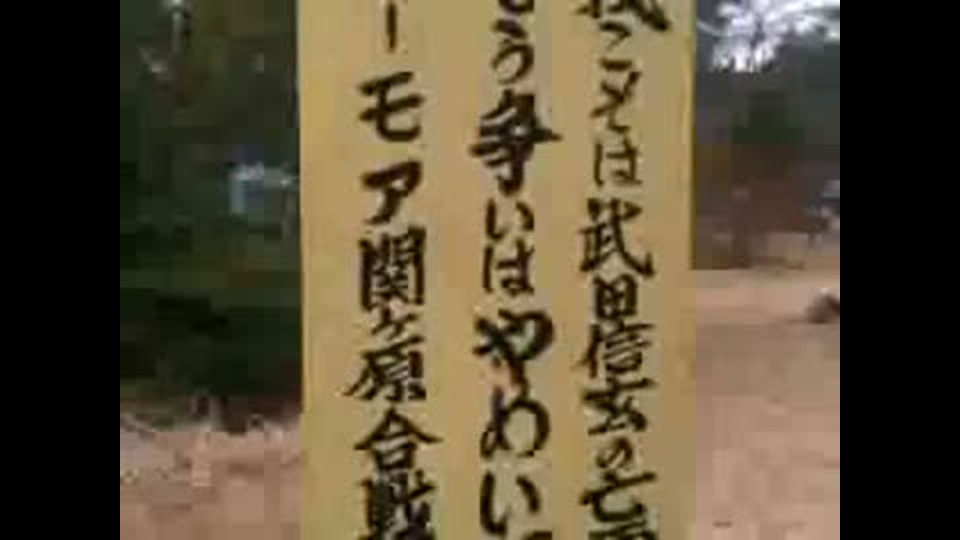 我こそは武田信玄の亡
もう争いはやめい
ーモア関ヶ原合戦